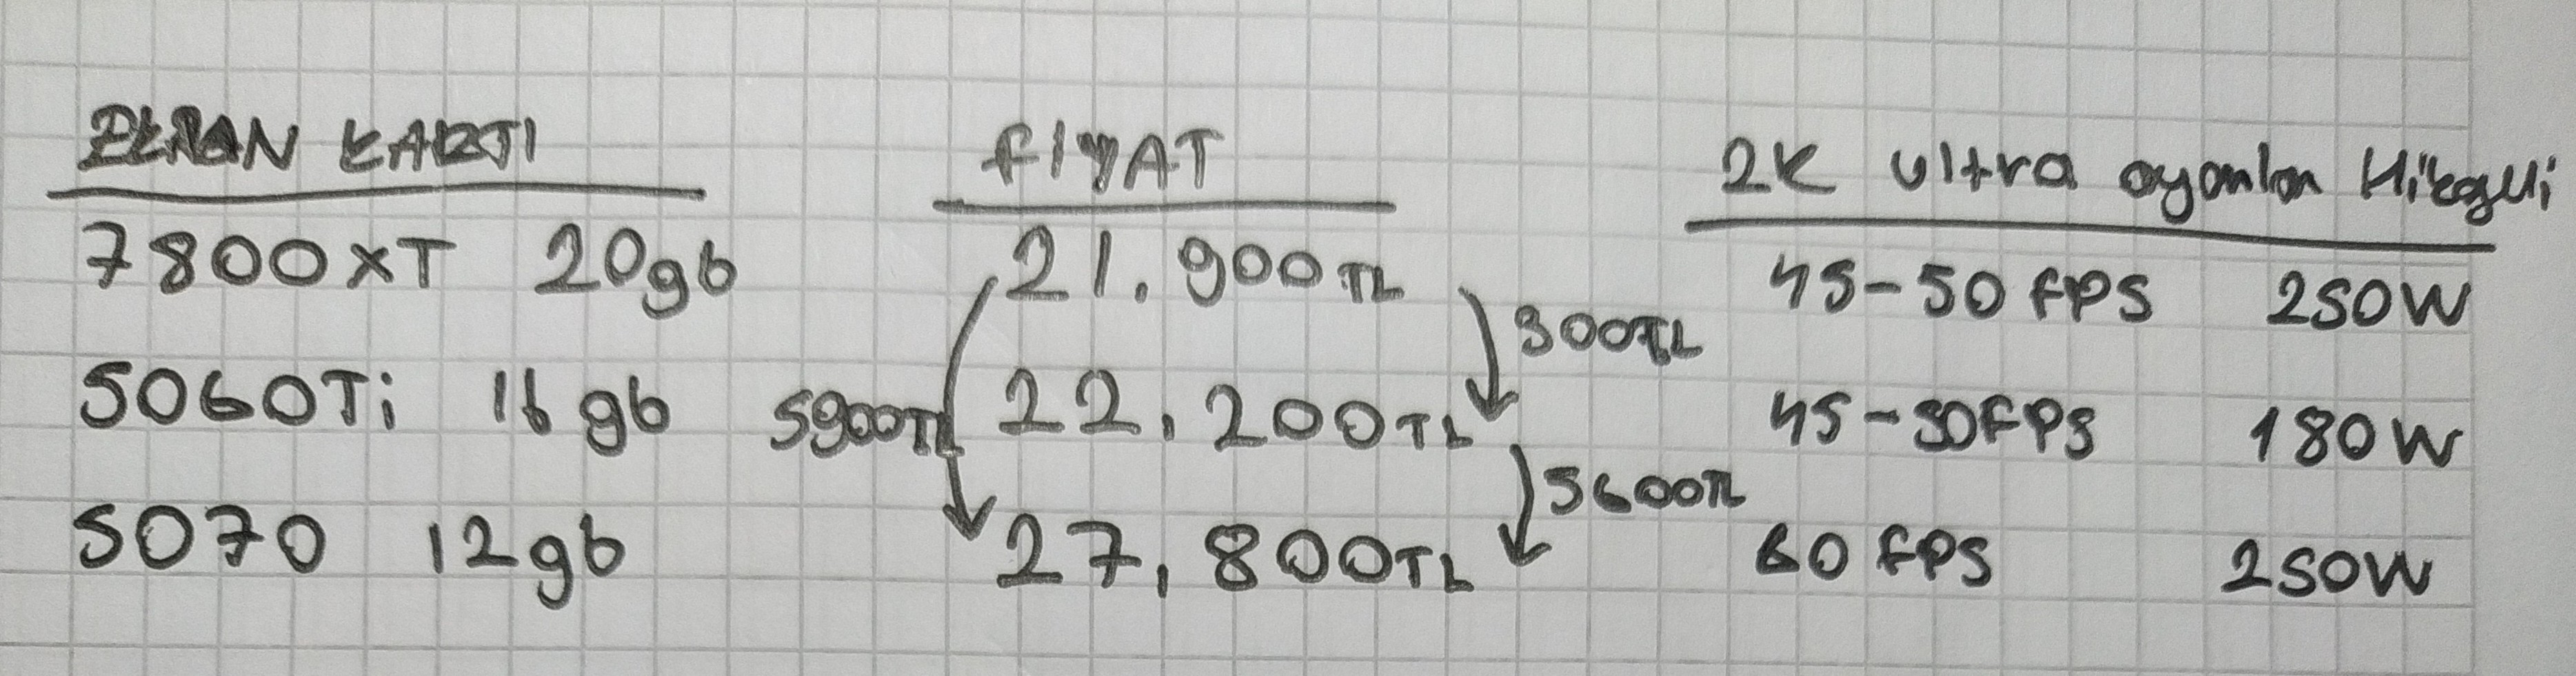 EKRAN KARTI FİYAT 2K Ultra oyunlar Hikayeli
7800XT 20gb 21.900TL 45-50 FPS 250W
300TL
5060Ti 16gb 5900TL 22.200TL 45-50FPS 180W
5600TL
5070 12gb 27.800TL 60 FPS 250W